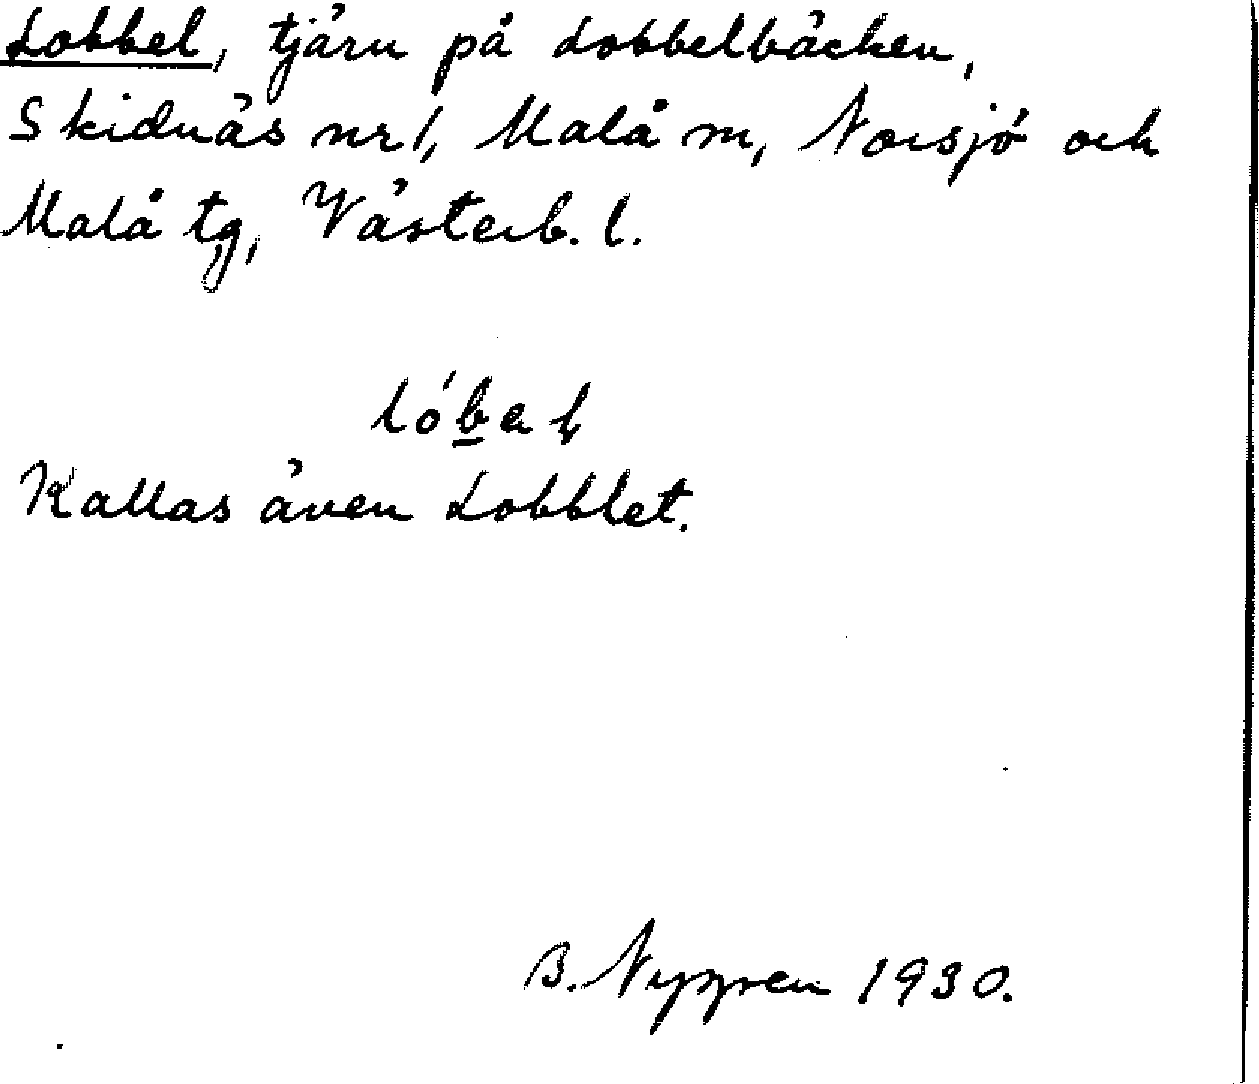 Lobbel, tjärn på Lobbelbäcken,
Skidnäs nr 1, Malå m, Norsjö och
Malå tg, Västerb. l.
lóbal
Kallas även Lobblet.
B. Nygren 1930.